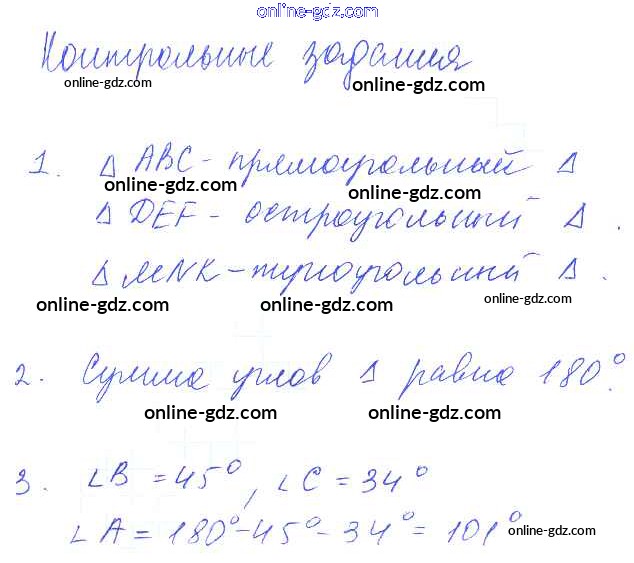 online-gdz.com
Контрольные задания
online-gdz.com online-gdz.com
1. Δ ABC - прямоугольный Δ
online-gdz.com online-gdz.com
Δ DEF - остроугольный Δ.
Δ MNK - тупоугольный Δ.
online-gdz.com online-gdz.com online-gdz.com
2. Сумма углов Δ равна 180°.
online-gdz.com online-gdz.com
3. ∠B = 45°, ∠C = 34°
∠A = 180° - 45° - 34° = 101°
online-gdz.com